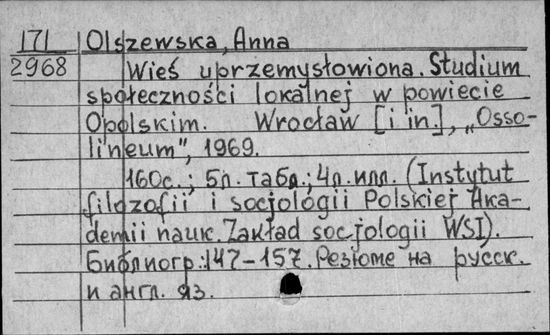 171 Olszewska, Anna
2968 Wieś uprzemysłowiona. Studium
społeczności lokalnej w powiecie
Opolskim. Wrocław [i in.], „Osso-
lineum", 1969.
160с.; 5л. табл.; 4л. илл. (Instytut
filozofii i socjologii Polskiej Aka-
demii nauk. Zakład socjologii WSI).
Библиогр.: 147-157. Резюме на русск.
и англ. яз.